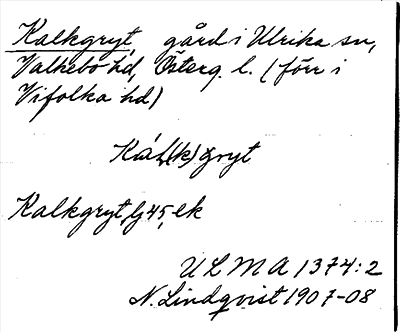 Kalkgryt, gård i Ulrika sn,
Valkebo hd, Österg. l. (förr i
Vifolka hd)
Kál(k)gryt
Kalkgryt, G 45, ek
ULMA 1374:2
N. Lindqvist 1907-08